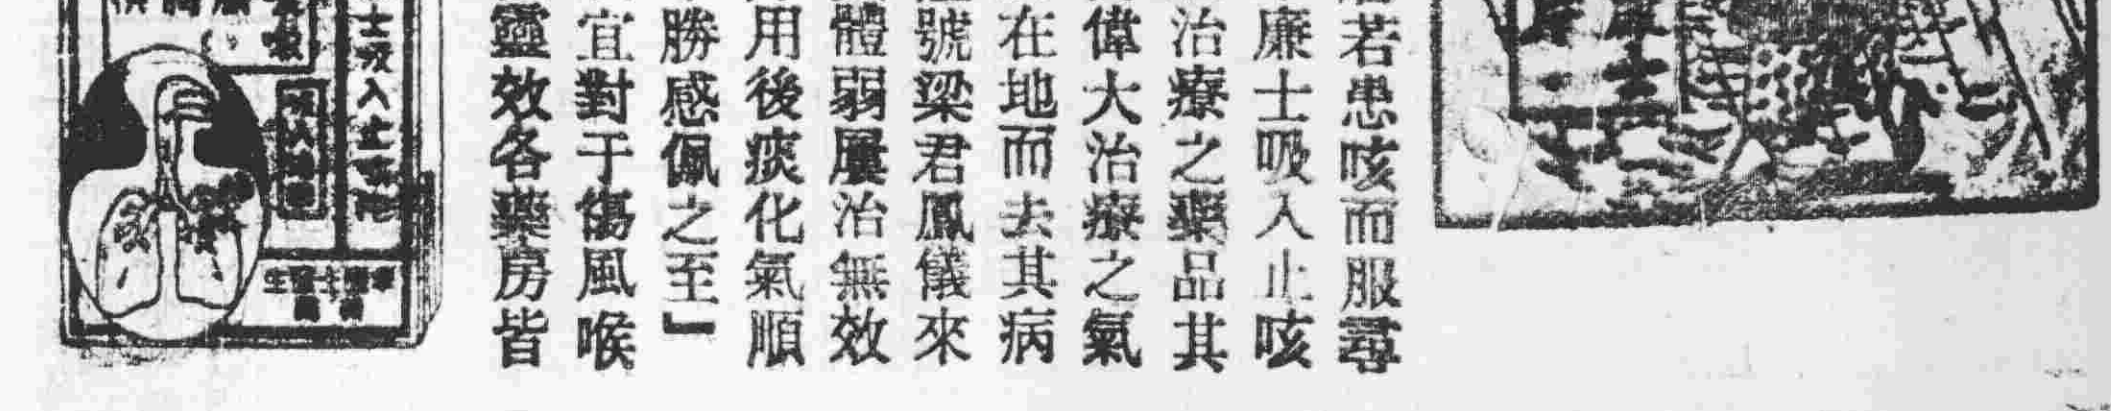 若患咳而服尋
廉士吸入止咳
治療之藥品其
偉大治療之氣
在地而去其病
號梁君鳳儀來
體弱屢治無效
用後痰化氣順
勝感佩之至』
宜對于傷風喉
靈效各藥房皆
士吸入止咳